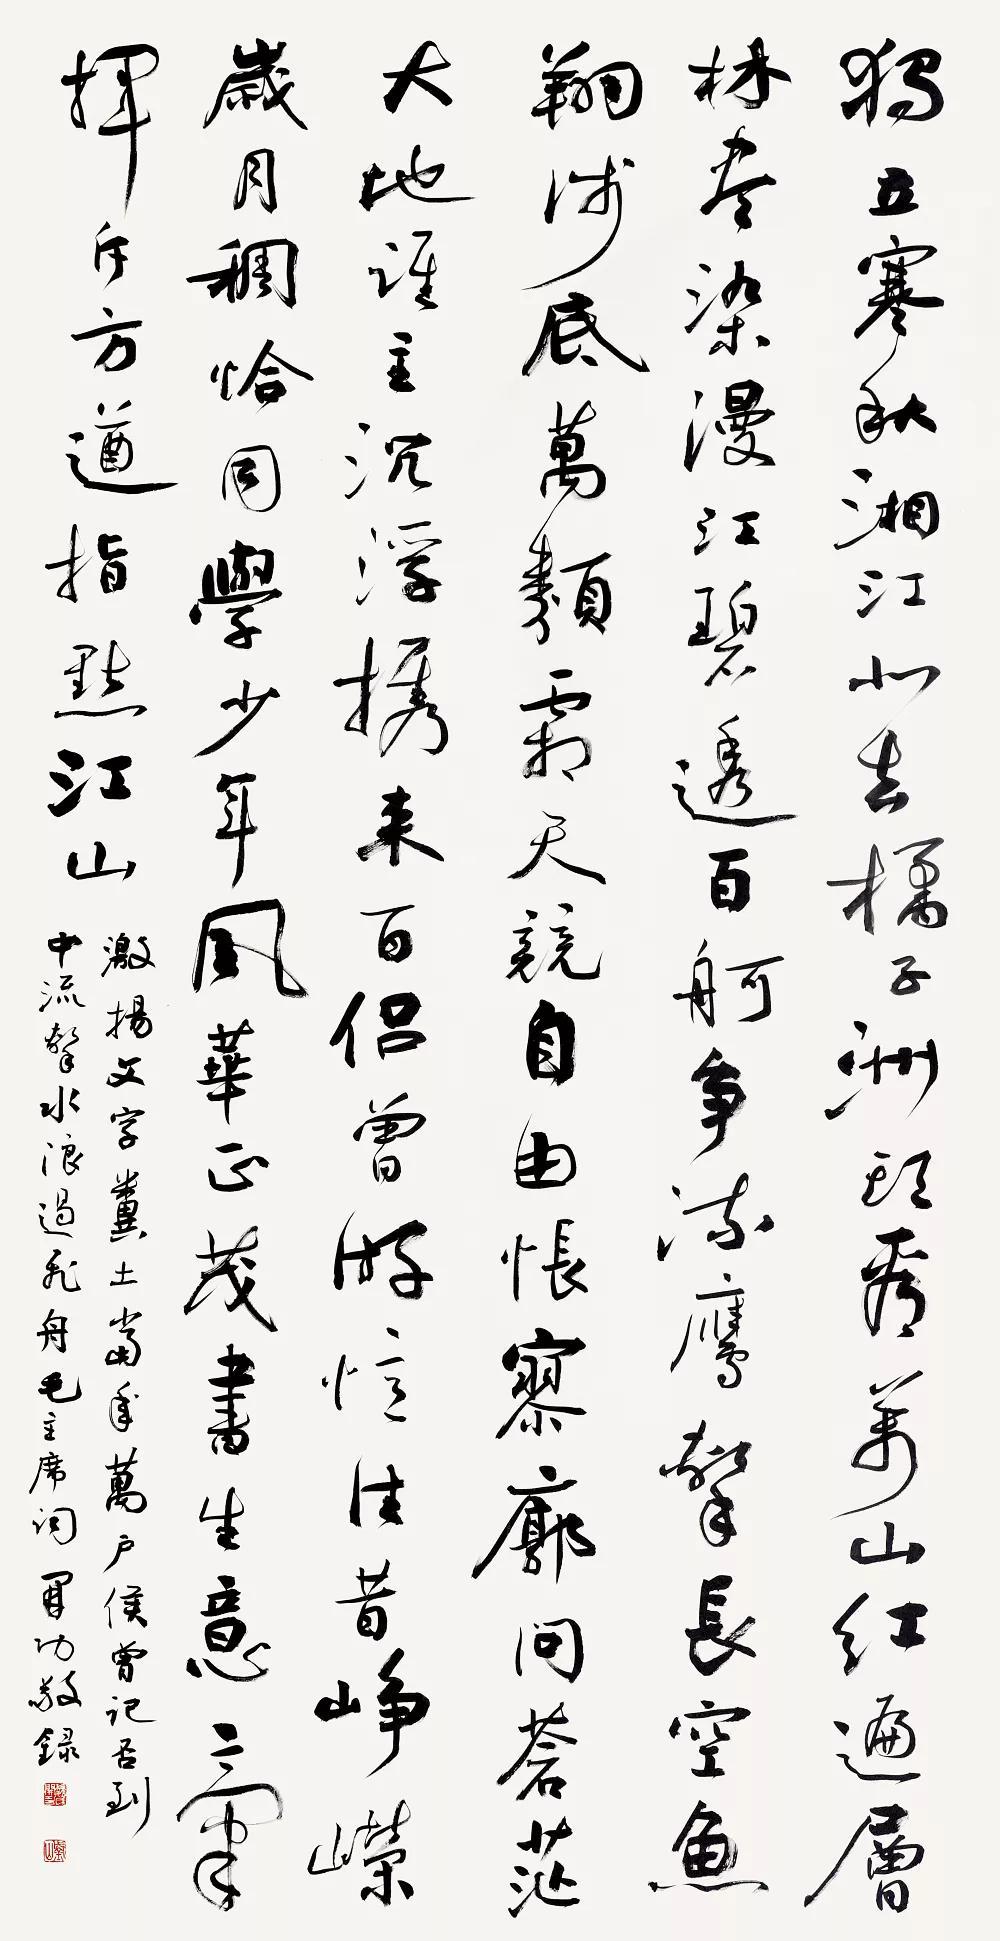 獨立寒秋湘江北去橘子洲頭看萬山紅遍層
林盡染漫江碧透百舸争流鷹擊長空魚
翔淺底萬類霜天競自由悵寥廓問蒼茫
大地誰主沉浮携来百侣曾游憶往昔崢嶸
歲月稠恰同學少年風華正茂書生意氣
揮斥方遒指點江山
激揚文字糞土當年萬户侯曾記否到
中流擊水浪遏飛舟毛主席詞 功敬録